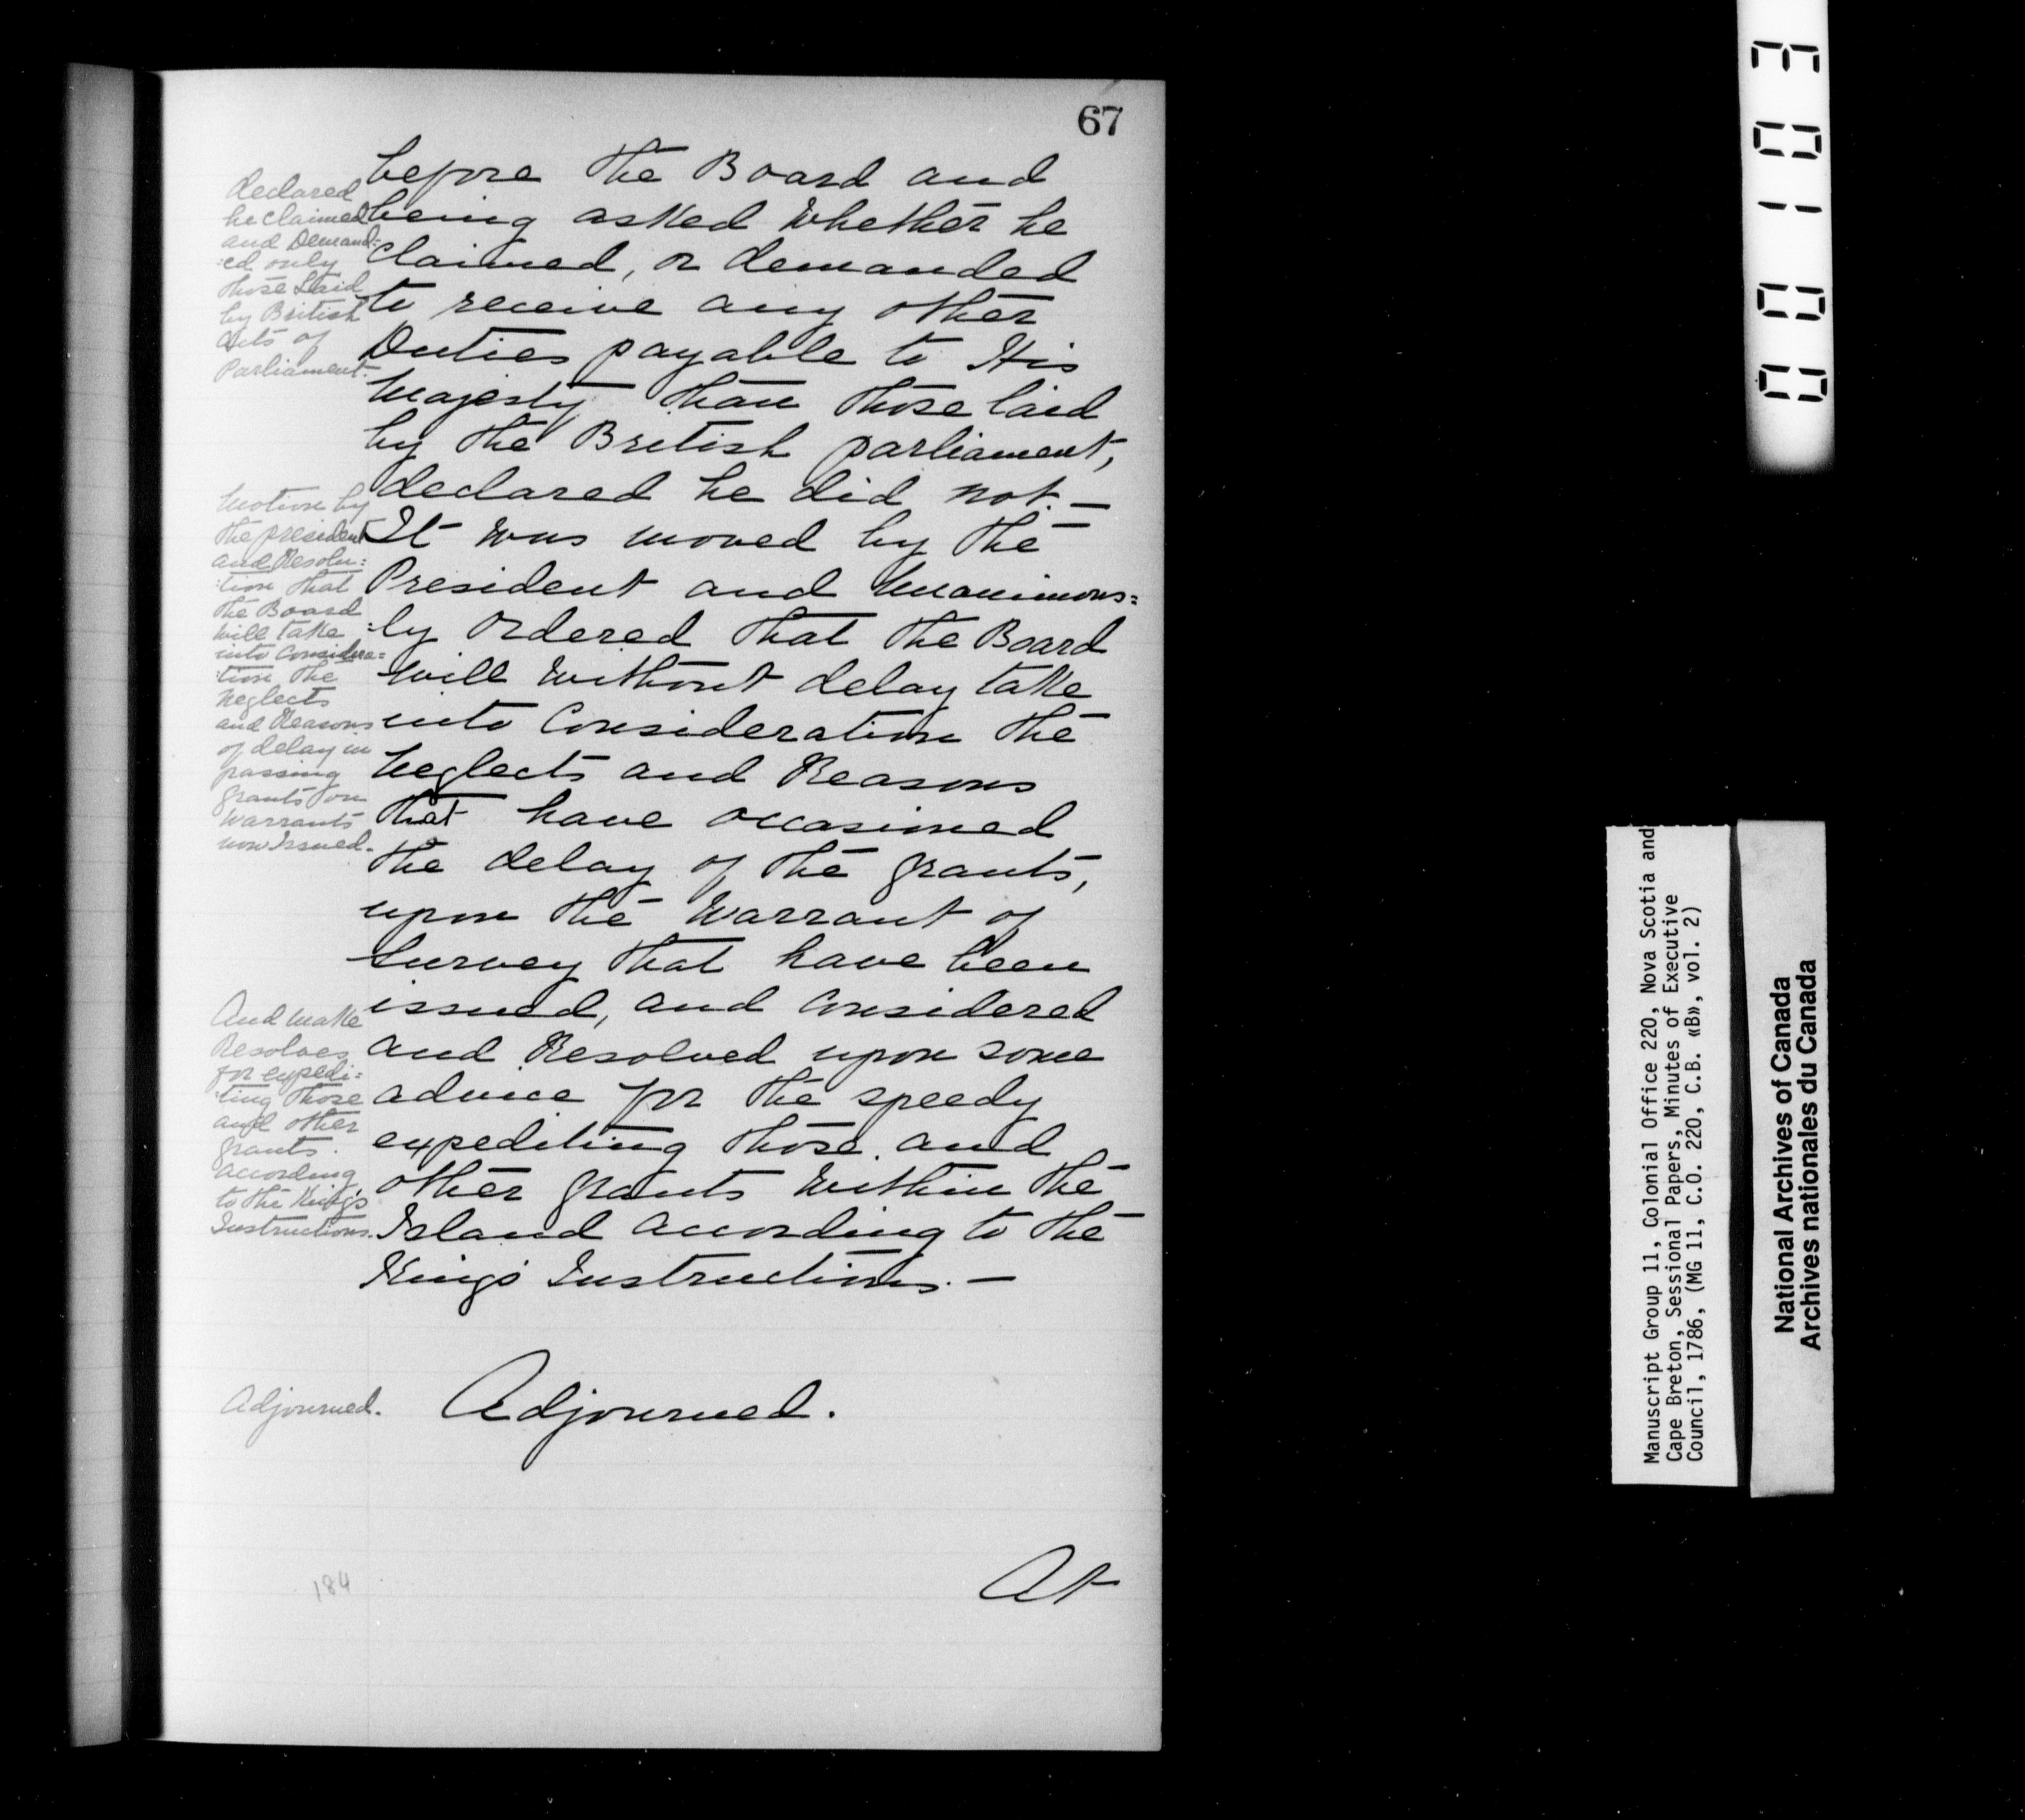 67
before the Board and
being asked whether he
claimed, or demanded
to receive any other
Duties payable to His
Majesty than those laid
by the British parliament,
declared he did not. —
It was moved by the
President and Unanimous=
:ly Ordered that the Board
will without delay take
into Consideration the
Neglects and Reasons
that have occasioned
the delay of the grants,
upon the Warrant of
Survey that have been
issued, and considered
and Resolved upon some
advice for the speedy
expediting those and
other grants within the
Island according to the
King's Instructions. —
Adjourned.
At
declared
he claimed
and Demand=
:ed only
those Laid
by British
Acts of
Parliament.
Motion by
the president
and Resolu=
:tion that
the Board
will take
into Considera=
:tion the
Neglects
and Reasons
of delay in
passing
grants on
Warrants
now Issued.
And make
Resolves
for expedi=
:ting those
and other
grants.
according
to the King's
Instructions.
Adjourned.
184
001103
Manuscript Group 11, Colonial Office 220, Nova Scotia and
Cape Breton, Sessional Papers, Minutes of Executive
Council, 1786, (MG 11, C.O. 220, C.B. «B», vol. 2)
National Archives of Canada
Archives nationales du Canada